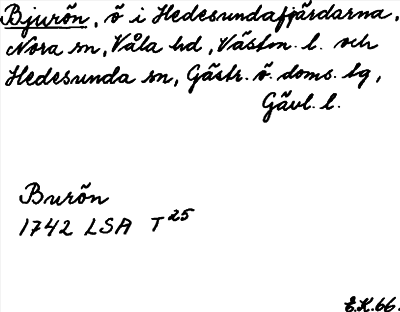 Bjurön, ö i Hedesundafjärdarna,
Nora sn, Våla hd, Västm. l. och
Hedesunda sn, Gästr. ö. doms. tg,
Gävl. l.
Burön
1742 LSA T25
E.K.66.